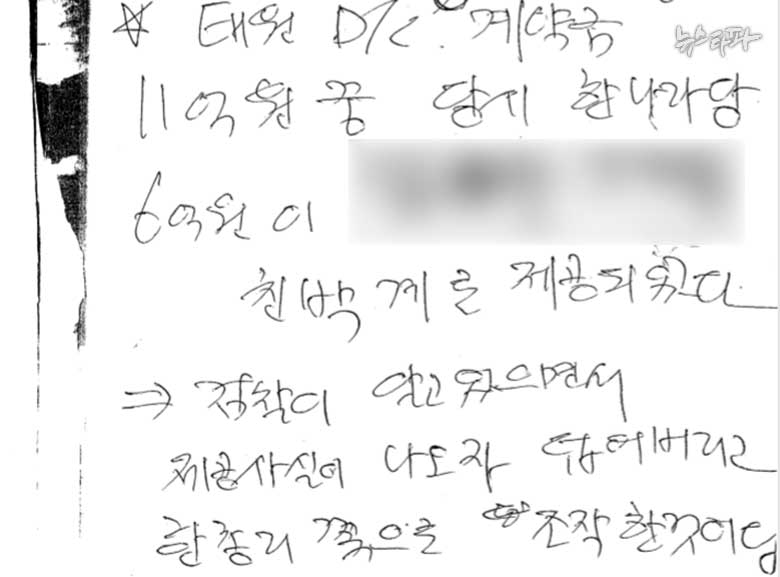 ☆ 태원 D/C. 계약금
뉴스타파
11억원 중 당시 한나라당
6억원이
친박계로 제공되었다
⇒ 검찰이 알고 있으면서
제공사실이 나오자 덮어버리고
한총리 쪽으로 조작 한것이님